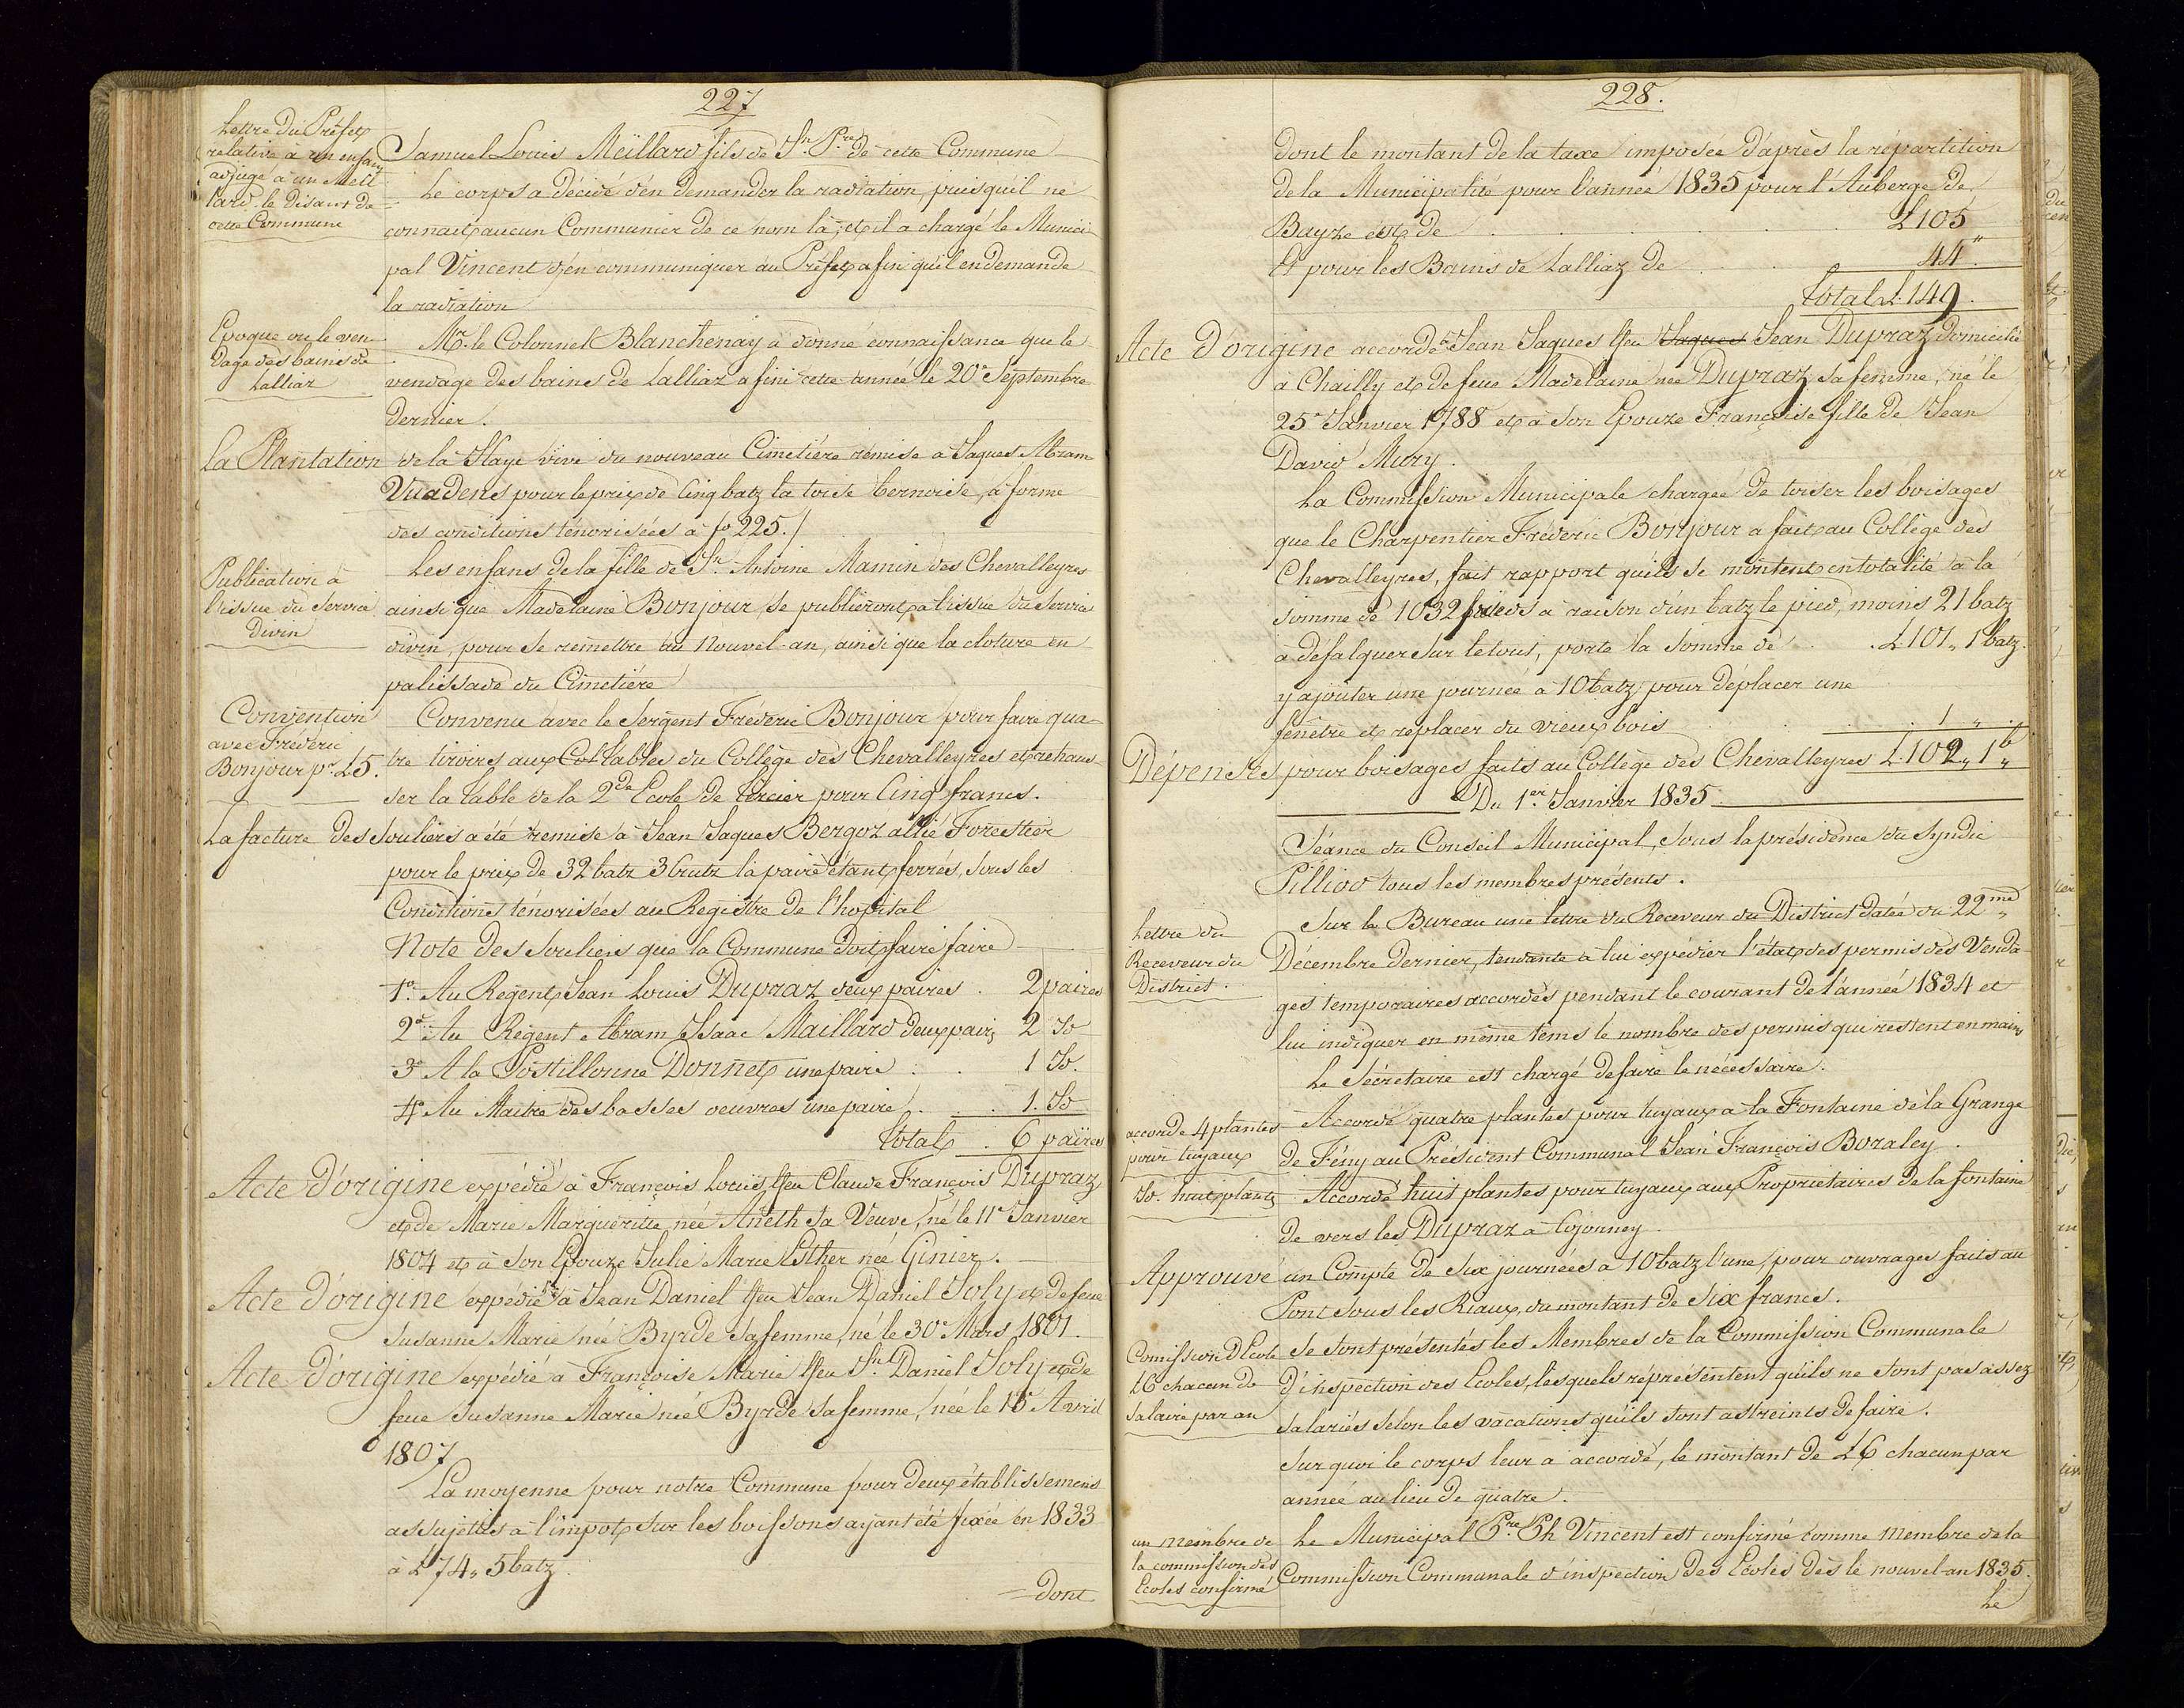 227
Lettre du Préfet
relative à un enfant
adjugé à un Meil-
lard le disant de
cette Commune
Samuel Louis Meillard fils de Jn. Pre. de cette Commune
Le corps a décidé d'en demander la radiation, puisqu'il ne
connait aucun Communier de ce nom là; et il a chargé le Munici-
pal Vincent d'en communiquer au Préfet afin qu'il en demande
la radiation
Epoque ou le ven-
dage des bains de
Lalliaz
Mr. le Colonnel Blanchenay a donné connaissance que le
vendage des bains de Lalliaz a fini cette année le 20e Septembre
dernier.
La Plantation de la Haye vive du nouveau Cimetière remise à Jaques Abram
Vuadens pour le prix de Cinq batz la toise bernoise, à forme
des conditions ténorisées à fo 225./
Publication à
l'issue du Service
Divin
Les enfans de la fille de Jn. Antoine Mamin des Chevalleyres
ainsi que Madelaine Bonjour se publieront à l'issue du Service
divin, pour se remettre au Nouvel-an, ainsi que la cloture en
palissade du Cimetière
Convention
avec Fréderic
Bonjour pr. £5.
Convenu avec le Sergent Fréderic Bonjour pour faire qua-
tre tiroirs aux Col tables du Collège des Chevalleyres et rehaus
ser la table de la 2de Ecole de tercier pour Cinq francs.
La facture des Souliers a été remise à Jean Jaques Bergoz allié Forestier
pour le prix de 32 batz 3 Crutz la paire étant ferrés, sous les
Conditions ténorisées au Registre de l'hopital
Note des Souliers que la Commune doit faire faire
1o. Au Regent Jean Louis Dupraz deux paires . 2 paires
2o Au Régent Abram Isaac Maillard deux paires 2 do
3o A la Postillonne Donnet une paire . . 1 do.
4o Au Maitre des basses oeuvres une paire . . 1. do
Total . 6 paires
Acte d'origine expédié à François Louis ffeu Claude François Dupraz
et de Marie Marguéritte née Aneth sa Veuve, né le 11e Janvier
1804 et à son Epouze Julie Marie Esther née Ginier.
Acte d'origine expédié à Jean Daniel ffeu Jean Daniel Joly et de feue
Susanne Marie née Byrde sa femme, né le 30e Mars 1801.
Acte d'origine expédié à Françoise Marie ffeu Jn. Daniel Joly et de
feue Susanne Marie née Byrde sa femme, née le 15 Avril
1807
La moyenne pour notre Commune pour deux établissemens
assujettis à l'impot sur les boissons ayant été fixée en 1833
à £74,, 5 batz.
= dont
228.
dont le montant de la taxe imposée d'après la répartition
de la Municipalité pour l'année 1835 pour l'Auberge de
Bayze est de . . . . . £105
Et pour les Bains de Lalliaz de . . 44"
Total £.149.
Acte d'origine accordé à Jean Jaques ffeu Jaques Jean Dupraz domicilié
à Chailly et de feue Madelaine née Dupraz sa femme, né le
25e Janvier 1788 et à son Epouze Françoise fille de Jean
David Mury.
La Commission Municipale chargée de toiser les boisages
que le Charpentier Fréderic Bonjour a fait au Collège des
Chevalleyres, fait rapport qu'ils se montent en totalité à la
somme de 1032 pieds à raison d'un batz le pied, moins 21 batz
à défalquer sur le tout, porte la somme de . . £101,, 1 batz.
y ajouter une journée à 10 batz pour déplacer une
fenêtre et replacer du vieux bois . . . . 1 ,, .
Dépenses pour boisages faits au Collège des Chevalleyres £.102,, 1b
Du 1er. Janvier 1835
Séance du Conseil Municipal, sous la présidence du Syndic
Pilliod tous les membres présents.
Lettre du
Receveur du
District.
Sur le Bureau une lettre du Receveur du District datée du 22me
Décembre dernier, tendante à lui expédier l'état des permis des Venda
ges temporaires accordés pendant le courant de l'année 1834 et
lui indiquer en même tems le nombre des permis qui restent en mains
Le Sécretaire est chargé de faire le nécessaire.
accordé 4 plantes
pour tuyaux
Accordé quatre plantes pour tuyaux à la Fontaine de la Grange
de Fény au Président Communal Jean François Boraley.
do. huit plantes
Accordé huit plantes pour tuyaux aux Proprietaires de la fontaine
de vers les Dupraz à Cojonney.
Approuvé un Compte de six journées à 10 batz l'une, pour ouvrages faits au
Pont sous les Riaux, du montant de Six francs.
Comission d'Ecole
£6 chacun de
Salaire par an
Se sont présentés les Membres de la Commission Communale
d'inspection des Ecoles, lesquels représentent qu'ils ne sont pas assez
salariés selon les vacations qu'ils sont astreints de faire.
Sur quoi le corps leur a accordé, le montant de £6 chacun par
année au lieu de quatre.
un Membre de
la commission des
Ecoles confirmé
Le Municipal Pre. Ph Vincent est confirmé comme Membre de la
Commission Communale d'inspection des Ecoles dès le nouvel-an 1835.
Le